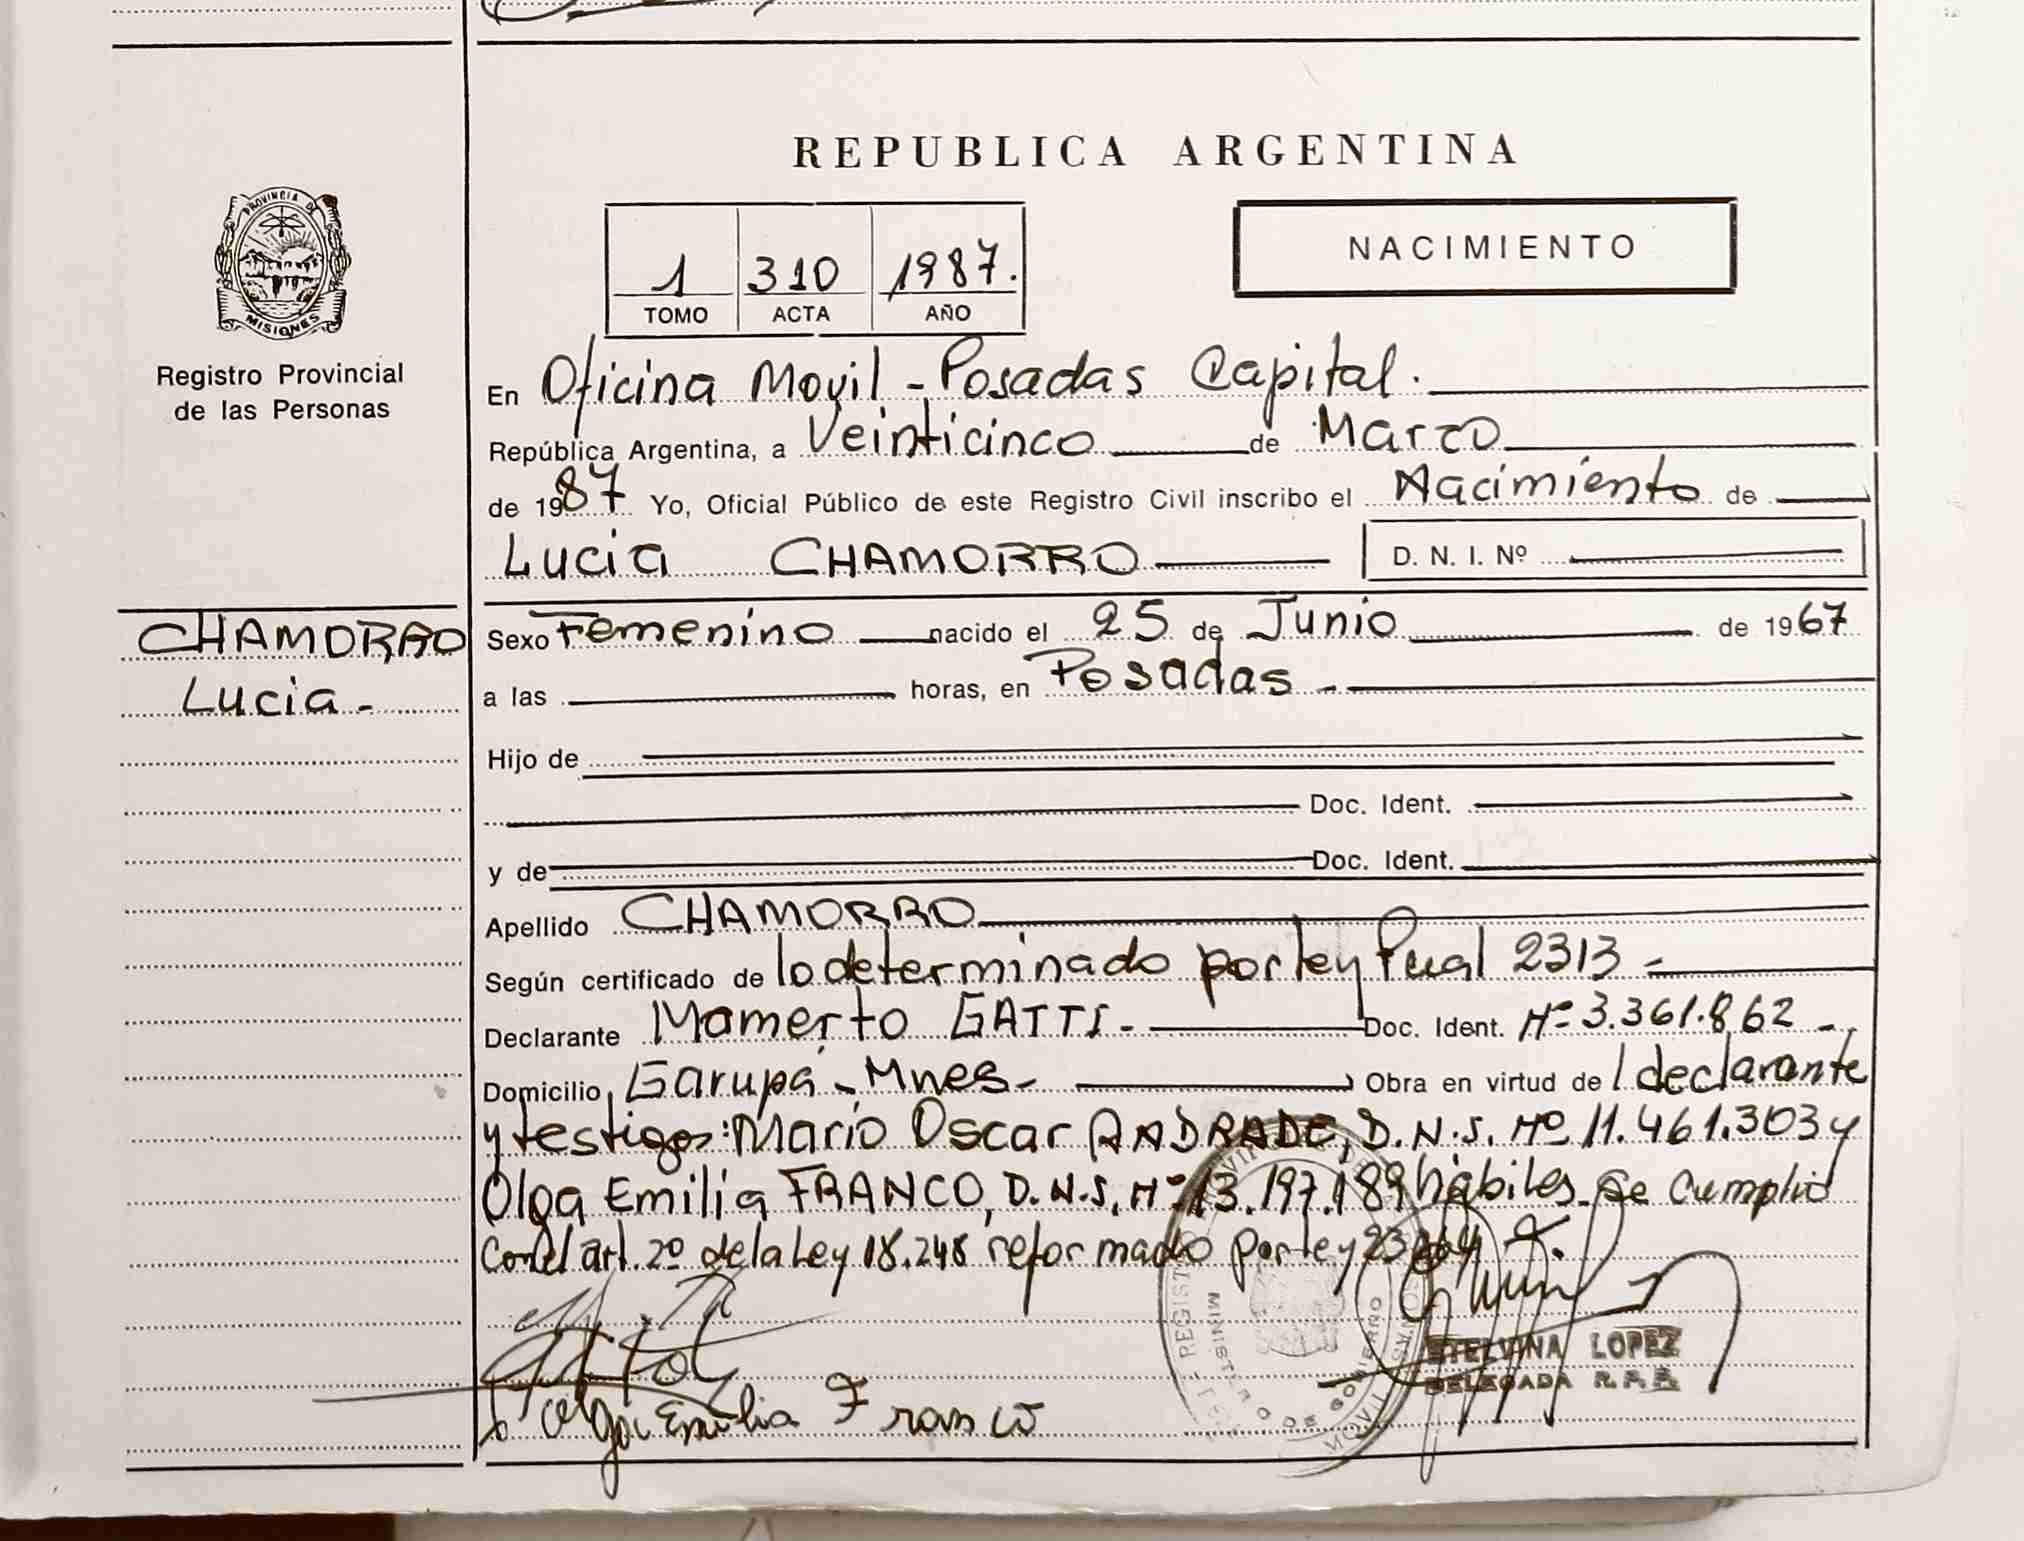 REPUBLICA ARGENTINA
NACIMIENTO
1 310 1987.
TOMO ACTA AÑO
PROVINCIA DE
MISIONES
Registro Provincial
de las Personas
En Oficina Movil - Posadas Capital.
República Argentina, a Veinticinco de Marzo
de 1987 Yo, Oficial Público de este Registro Civil inscribo el Nacimiento de
Lucia CHAMORRO D. N. I. Nº
CHAMORRO
Lucia -
Sexo Femenino nacido el 25 de Junio de 1967
a las horas, en Posadas -
Hijo de
Doc. Ident.
y de Doc. Ident.
Apellido CHAMORRO
Según certificado de lo determinado por ley Pcial 2313 -
Declarante Mamerto GATTI - Doc. Ident. Nº 3.361.862 -
Domicilio Garupá - Mnes - Obra en virtud de l declarante
y testigos: Mario Oscar ANDRADE, D.N.I. Nº 11.461.303 y
Olga Emilia FRANCO, D.N.I. Nº 13.197.189 hábiles. Se cumplió
con el art. 2º de la Ley 18.248 reformado por ley
Olga Emilia Franco
ETELVINA LOPEZ
DELEGADA R.P.P.
MINISTERIO DE GOBIERNO